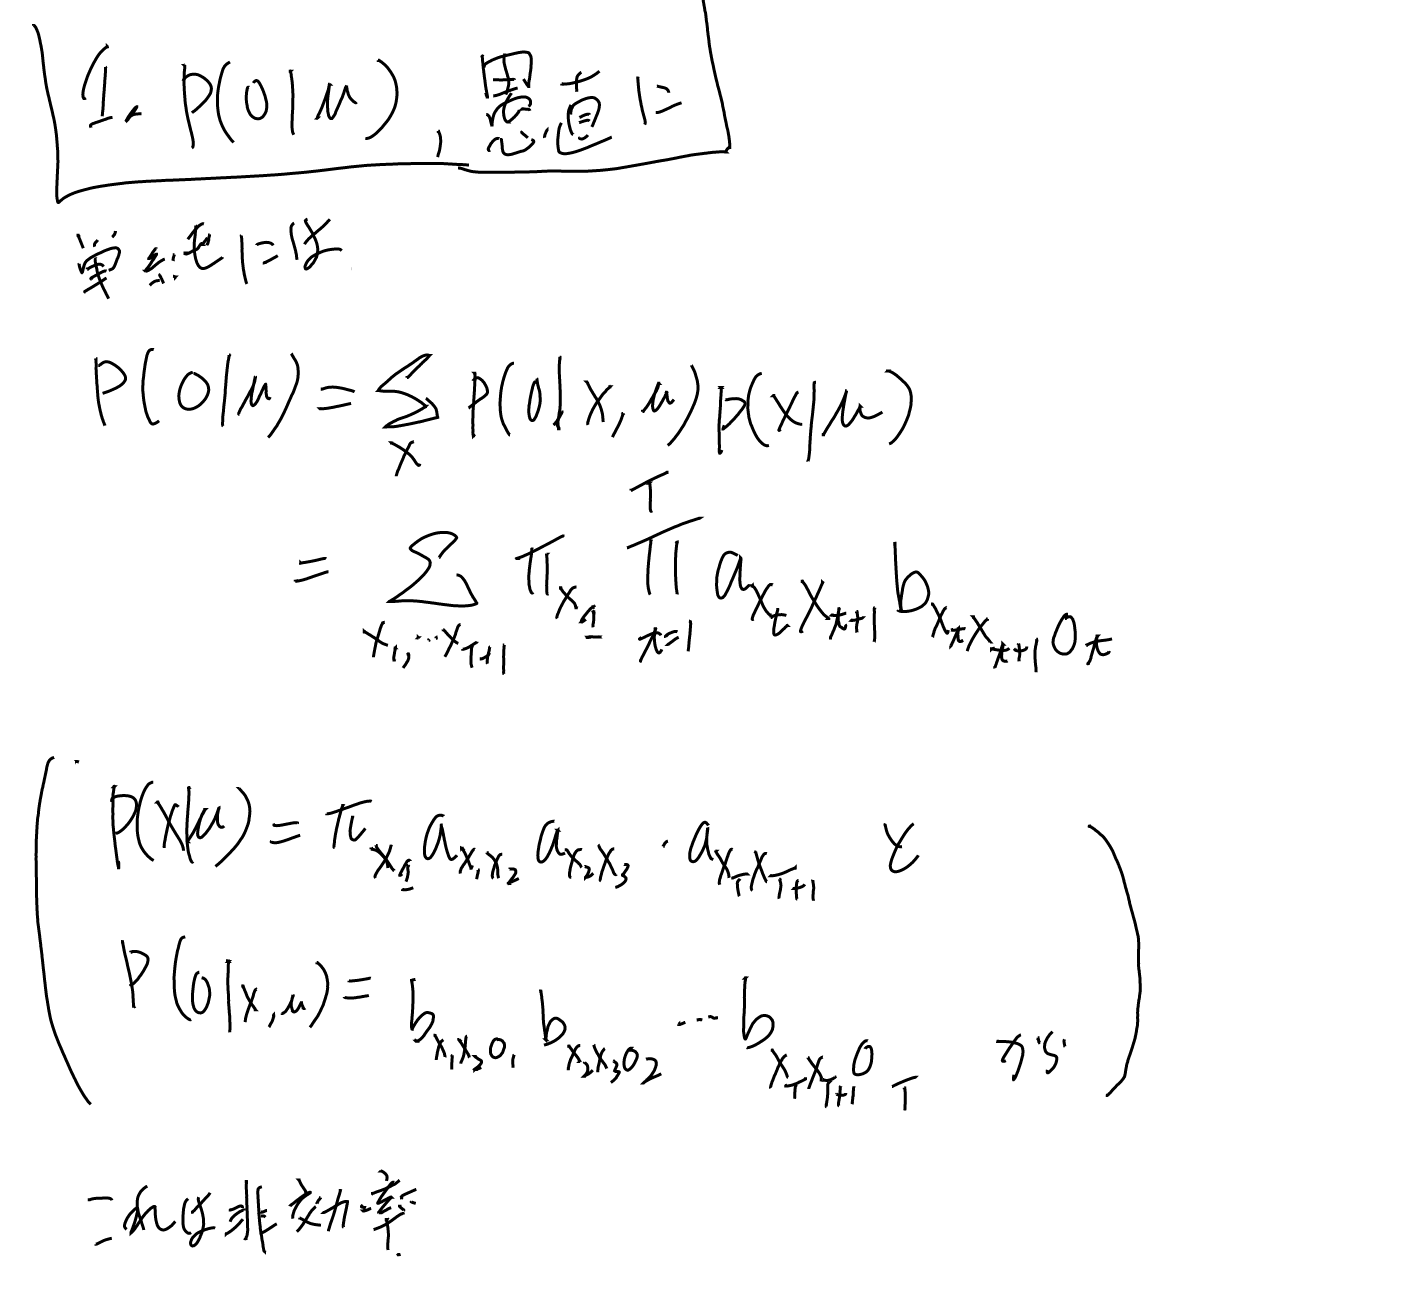 1. P(O|μ), 愚直に
単純には
P(O|μ) = Σ_X P(O|X, μ) P(X|μ)
= Σ_{X_1, ⋯ X_{T+1}} π_{X_1} Π_{t=1}^{T} a_{X_t X_{t+1}} b_{X_t X_{t+1} O_t}
P(X|μ) = π_{X_1} a_{X_1 X_2} a_{X_2 X_3} · a_{X_T X_{T+1}} と
P(O|X, μ) = b_{X_1 X_2 O_1} b_{X_2 X_3 O_2} ⋯ b_{X_T X_{T+1} O_T} から
これは非効率